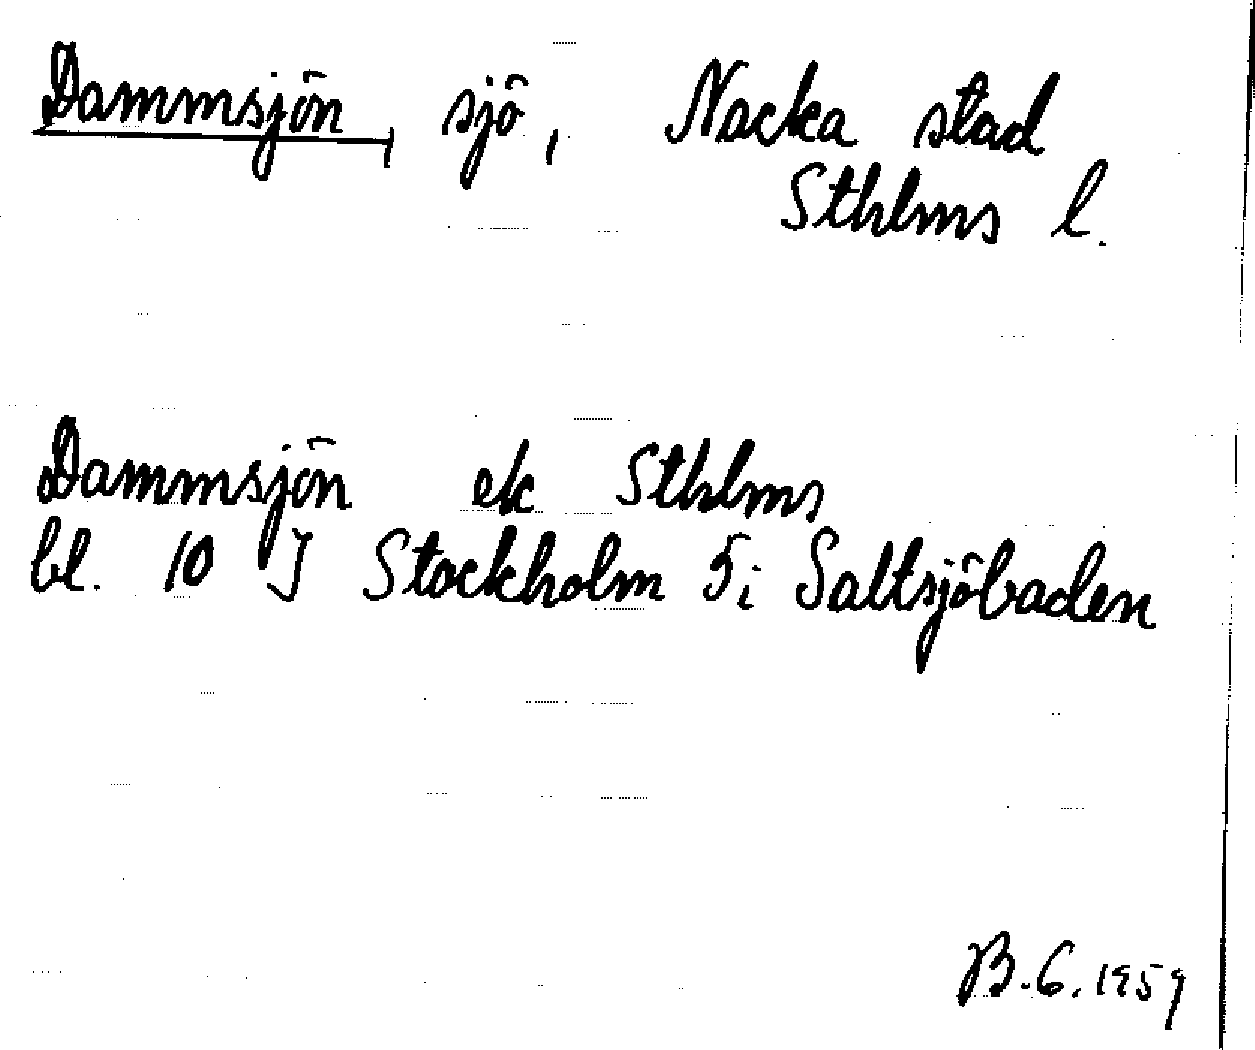 Dammsjön, sjö, Nacka stad
Sthlms l.
Dammsjön ek Sthlms
bl. 10 I Stockholm 5i Saltsjöbaden
B. G. 1959